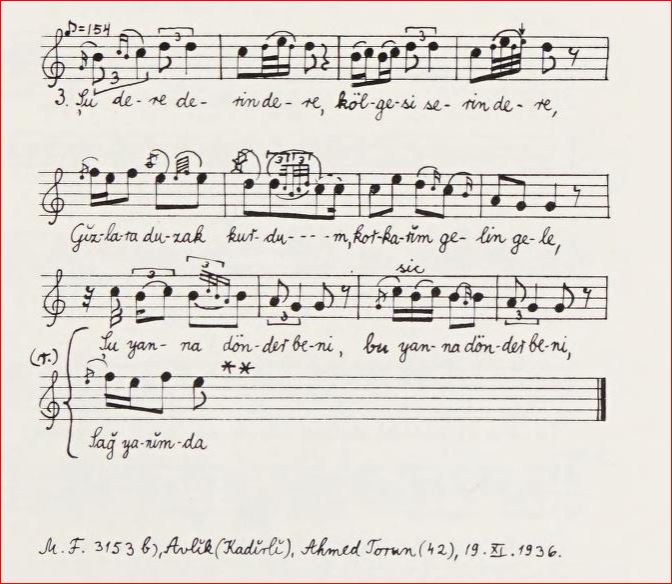 ♪=154
3. Şu de-re de- rin de-re, köl-ge-si se- rin de-re,
Gĭz-la-ra du-zak kuř-du- - - - m, koř-ka-řĭm ge-lin ge-le,
sic
Şu yan-na dön-deř be-ni, bu yan-na dön-deř be-ni,
(1.) **
Sağ ya-nĭm-da
M. F. 3153 b), Avlĭk (Kadĭrlĭ), Ahmed Torun (42), 19. XI. 1936.